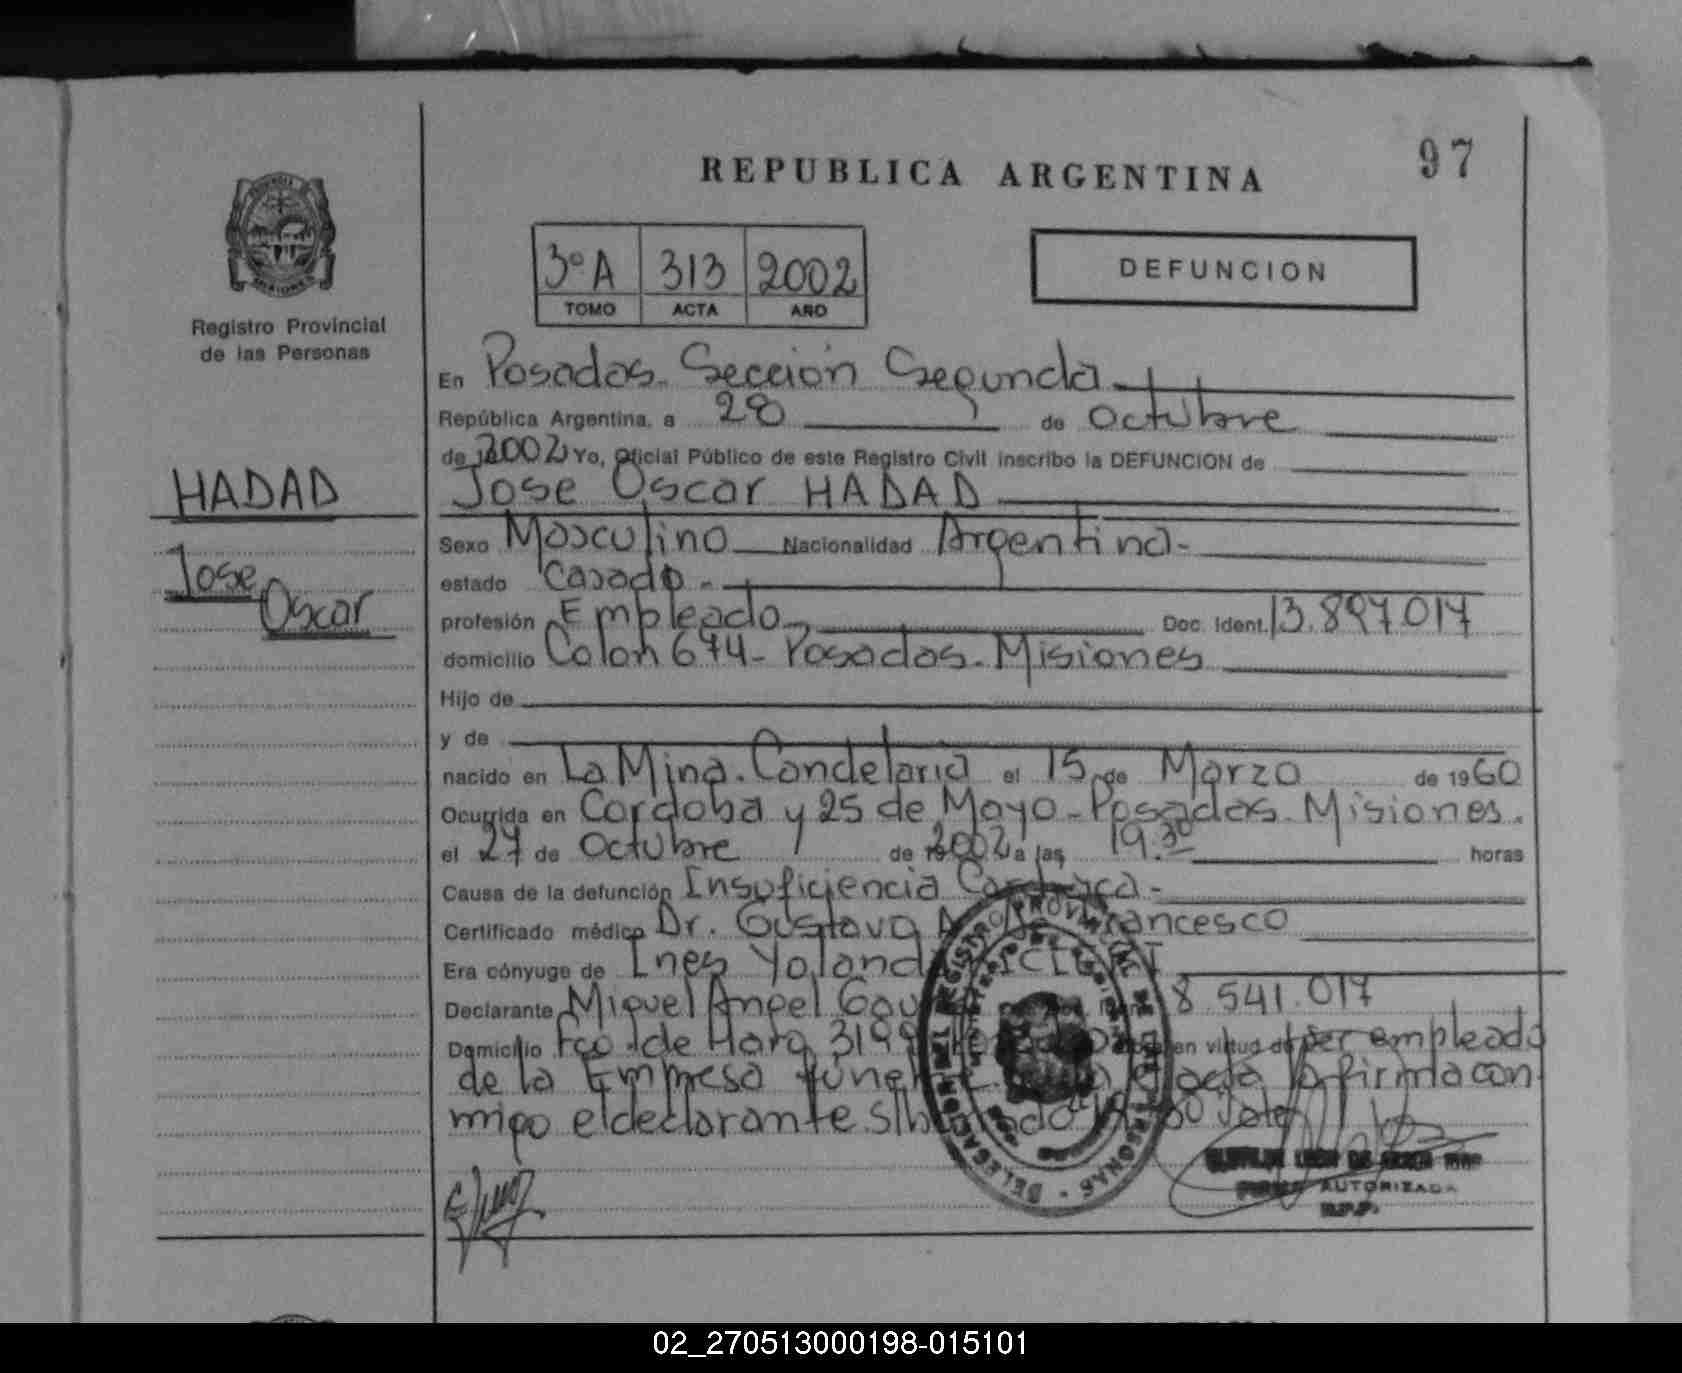 97
REPUBLICA ARGENTINA
3º A 313 2002
TOMO ACTA AÑO
DEFUNCION
Registro Provincial
de las Personas
HADAD
Jose
Oscar
En Posadas. Sección Segunda
República Argentina, a 28 de Octubre
de 2002 Yo, Oficial Público de este Registro Civil inscribo la DEFUNCION de
Jose Oscar HADAD
Sexo Masculino Nacionalidad Argentina-
estado Casado-
profesión Empleado Doc. Ident. 13.897.017
domicilio Colon 674- Posadas- Misiones
Hijo de
y de
nacido en La Mina. Candelaria el 15 de Marzo de 1960
Ocurrida en Cordoba y 25 de Mayo- Posadas. Misiones.
el 27 de Octubre de 2002 a las 19.30 horas
Causa de la defunción Insuficiencia Cardiaca-
Certificado médico Dr. Gustavo A. Francesco
Era cónyuge de Ines Yolanda
Declarante Miguel Angel 8.541.017
Domicilio Fco. de Haro 3199 en virtud de ser empleado
de la Empresa la firma con
migo el declarante
REGISTRO PROVINCIAL DE LAS PERSONAS - DELEGACION
AUTORIZADA
02_270513000198-015101